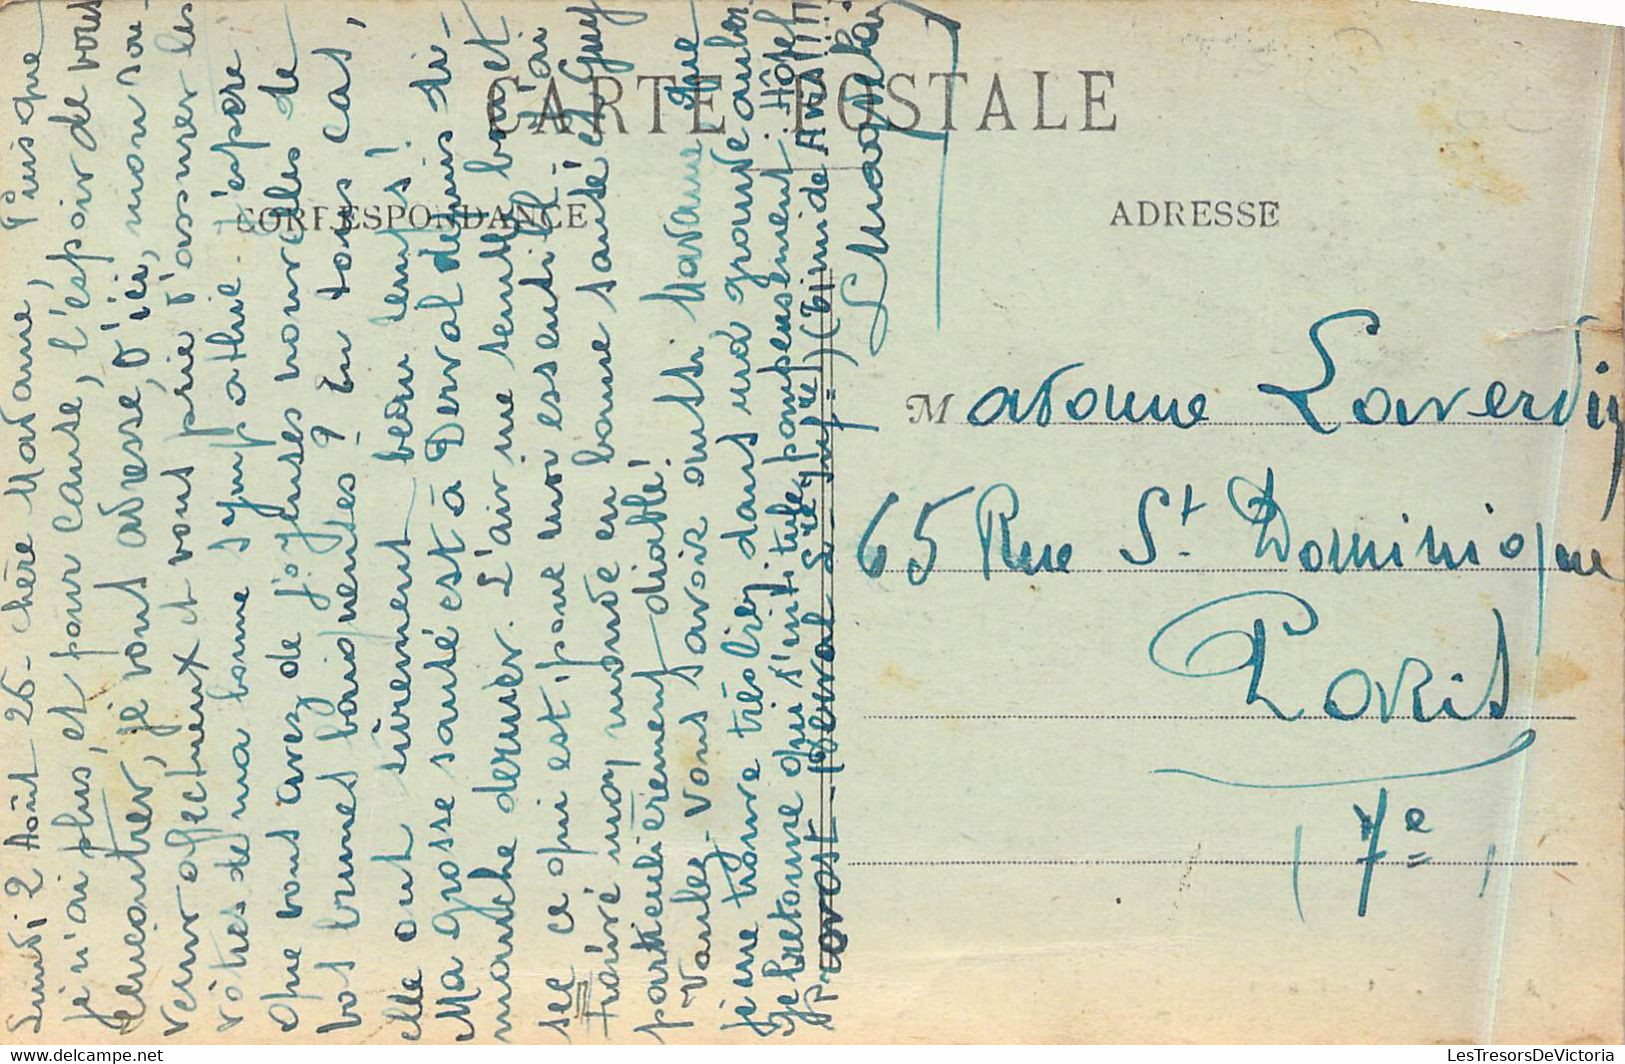 Lundi 2 Août 26 - Chère Madame, Puisque
je n'ai plus, et pour cause, l'espoir de vous
rencontrer, je vous adresse, d'ici, mon sou-
venir affectueux et vous prie d'assurer les
vôtres de ma bonne sympathie. J'espère
que vous avez de joyeuses nouvelles de
vos brunes baigneuses ? En tous cas,
elle ont sûrement beau temps !
Ma grosse santé est à Derval depuis di-
manche dernier. L'air me semble bon et
sec ce qui est, pour moi essentiel. J'ai
trouvé mon monde en bonne santé et Guy
particulièrement diable !
Voulez-vous savoir aussi Madame que
je me trouve très bien dans ma grande auber-
ge bretonne qui s'intitule pompeusement : Hôtel
Provost (Derval Loire Infre)
CARTE POSTALE
CORRESPONDANCE
ADRESSE
Madame Laverdin
65 Rue St. Dominique
Paris
7e
LesTresorsDeVictoria.com
LesTresorsDeVictoria